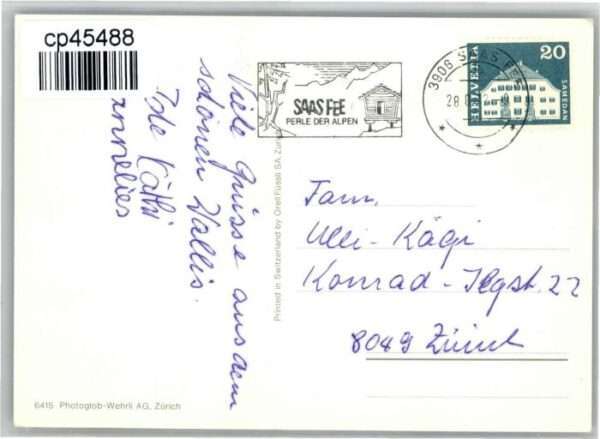 cp45488
SAAS FEE
PERLE DER ALPEN
3906 SAAS FEE
28
HELVETIA
20
SAMEDAN
Viele Grüsse aus dem
schönen Wallis.
Käthi
Annelies
Printed in Switzerland by Orell Füssli SA, Zürich
Fam.
Ulli-Kägi
Konrad-Ilgstr. 22
8049 Zürich
6415 Photoglob-Wehrli AG, Zürich